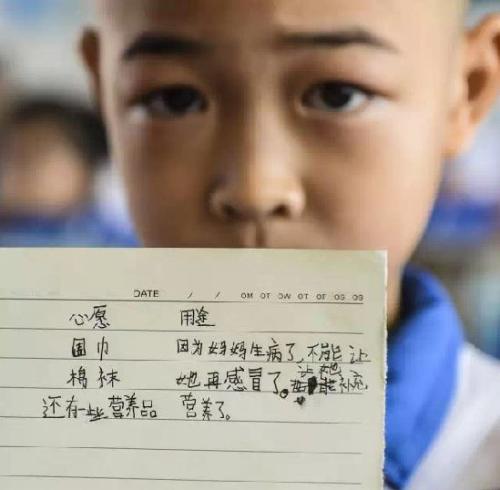 DATE / /
心愿 用途
围巾 因为妈妈生病了,不能让
棉袜 她再感冒了。让她能补充
还有一些营养品 营养了。